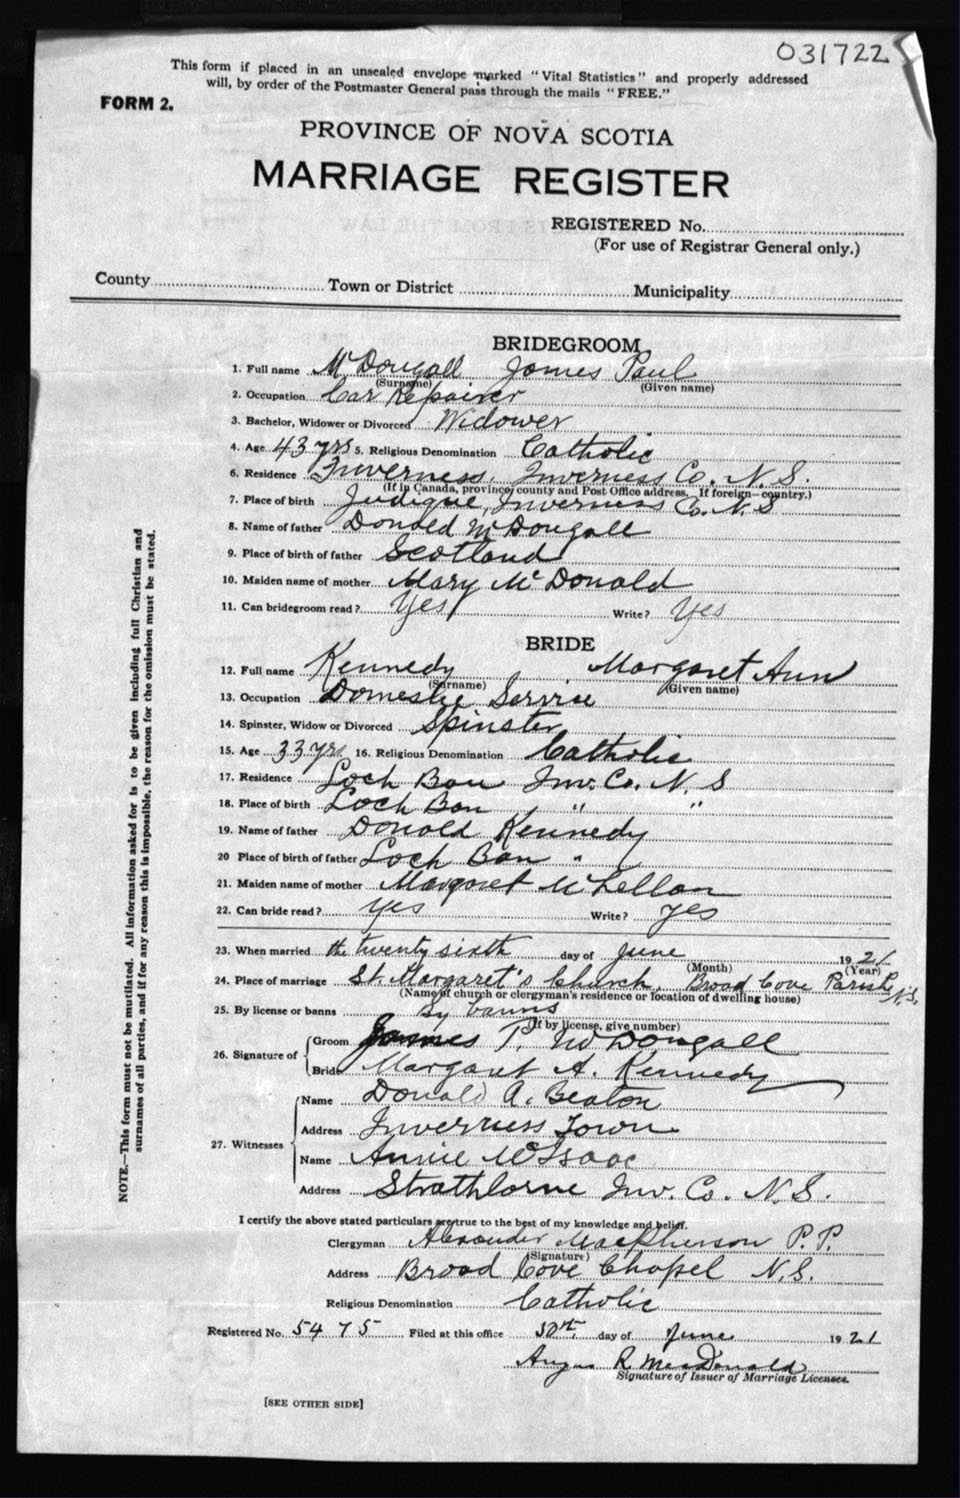 031722
This form if placed in an unsealed envelope marked "Vital Statistics" and properly addressed
will, by order of the Postmaster General pass through the mails "FREE."
FORM 2.
PROVINCE OF NOVA SCOTIA
MARRIAGE REGISTER
REGISTERED No.
(For use of Registrar General only.)
County Town or District Municipality
BRIDEGROOM
1. Full name McDougall James Paul
(Surname) (Given name)
2. Occupation Car Repairer
3. Bachelor, Widower or Divorced Widower
4. Age 43 yrs 5. Religious Denomination Catholic
6. Residence Inverness, Inverness Co. N. S.
(If in Canada, province, county and Post Office address. If foreign—country.)
7. Place of birth Judique, Inverness Co. N. S
8. Name of father Donald McDougall
9. Place of birth of father Scotland
10. Maiden name of mother Mary McDonald
11. Can bridegroom read? Yes Write? Yes
BRIDE
12. Full name Kennedy Margaret Ann
(Surname) (Given name)
13. Occupation Domestic Service
14. Spinster, Widow or Divorced Spinster
15. Age 33 yrs 16. Religious Denomination Catholic
17. Residence Loch Ban Inv. Co. N. S
18. Place of birth Loch Ban " "
19. Name of father Donald Kennedy
20 Place of birth of father Loch Ban "
21. Maiden name of mother Margaret McLellan
22. Can bride read? yes Write? yes
23. When married the twenty sixth day of June 1921
(Month) (Year)
24. Place of marriage St. Margaret's Church, Broad Cove Parish N.S.
(Name of church or clergyman's residence or location of dwelling house)
25. By license or banns By banns
(If by license, give number)
26. Signature of Groom James P. McDougall
Bride Margaret A. Kennedy
27. Witnesses Name Donald A. Beaton
Address Inverness Town
Name Annie McIsaac
Address Strathlorne Inv. Co. N. S.
I certify the above stated particulars are true to the best of my knowledge and belief.
Clergyman Alexander MacPherson P. P.
(Signature)
Address Broad Cove Chapel N. S.
Religious Denomination Catholic
Registered No. 5475 Filed at this office 30th day of June 1921
Angus R. MacDonald
Signature of Issuer of Marriage Licenses.
[SEE OTHER SIDE]
NOTE.—This form must not be mutilated. All information asked for is to be given including full Christian and
surnames of all parties, and if for any reason this is impossible, the reason for the omission must be stated.